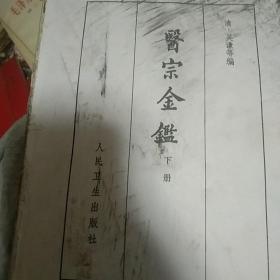 清 吴谦等编
醫宗金鑑
下册
人民卫生出版社